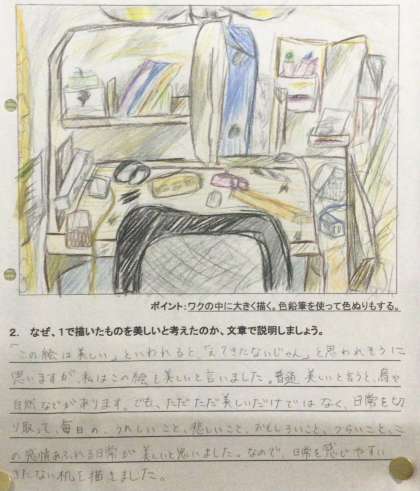 ポイント:ワクの中に大きく描く。色鉛筆を使って色ぬりもする。
2. なぜ、1で描いたものを美しいと考えたのか、文章で説明しましょう。
「この絵は美しい」といわれると、「えできたないじゃん」と思われそうに
思いますが、私はこの絵を美しいと言いました。普通、美しいと言うと、鳥や
自然などがあります。でも、ただただ美しいだけではなく、日常を切
り取って、毎日の、うれしいこと、悲しいこと、おもしろいこと、つらいこと、こ
の感情あふれる日常が美しいと思いました。なので、日常を感じやすい
きたない机を描きました。